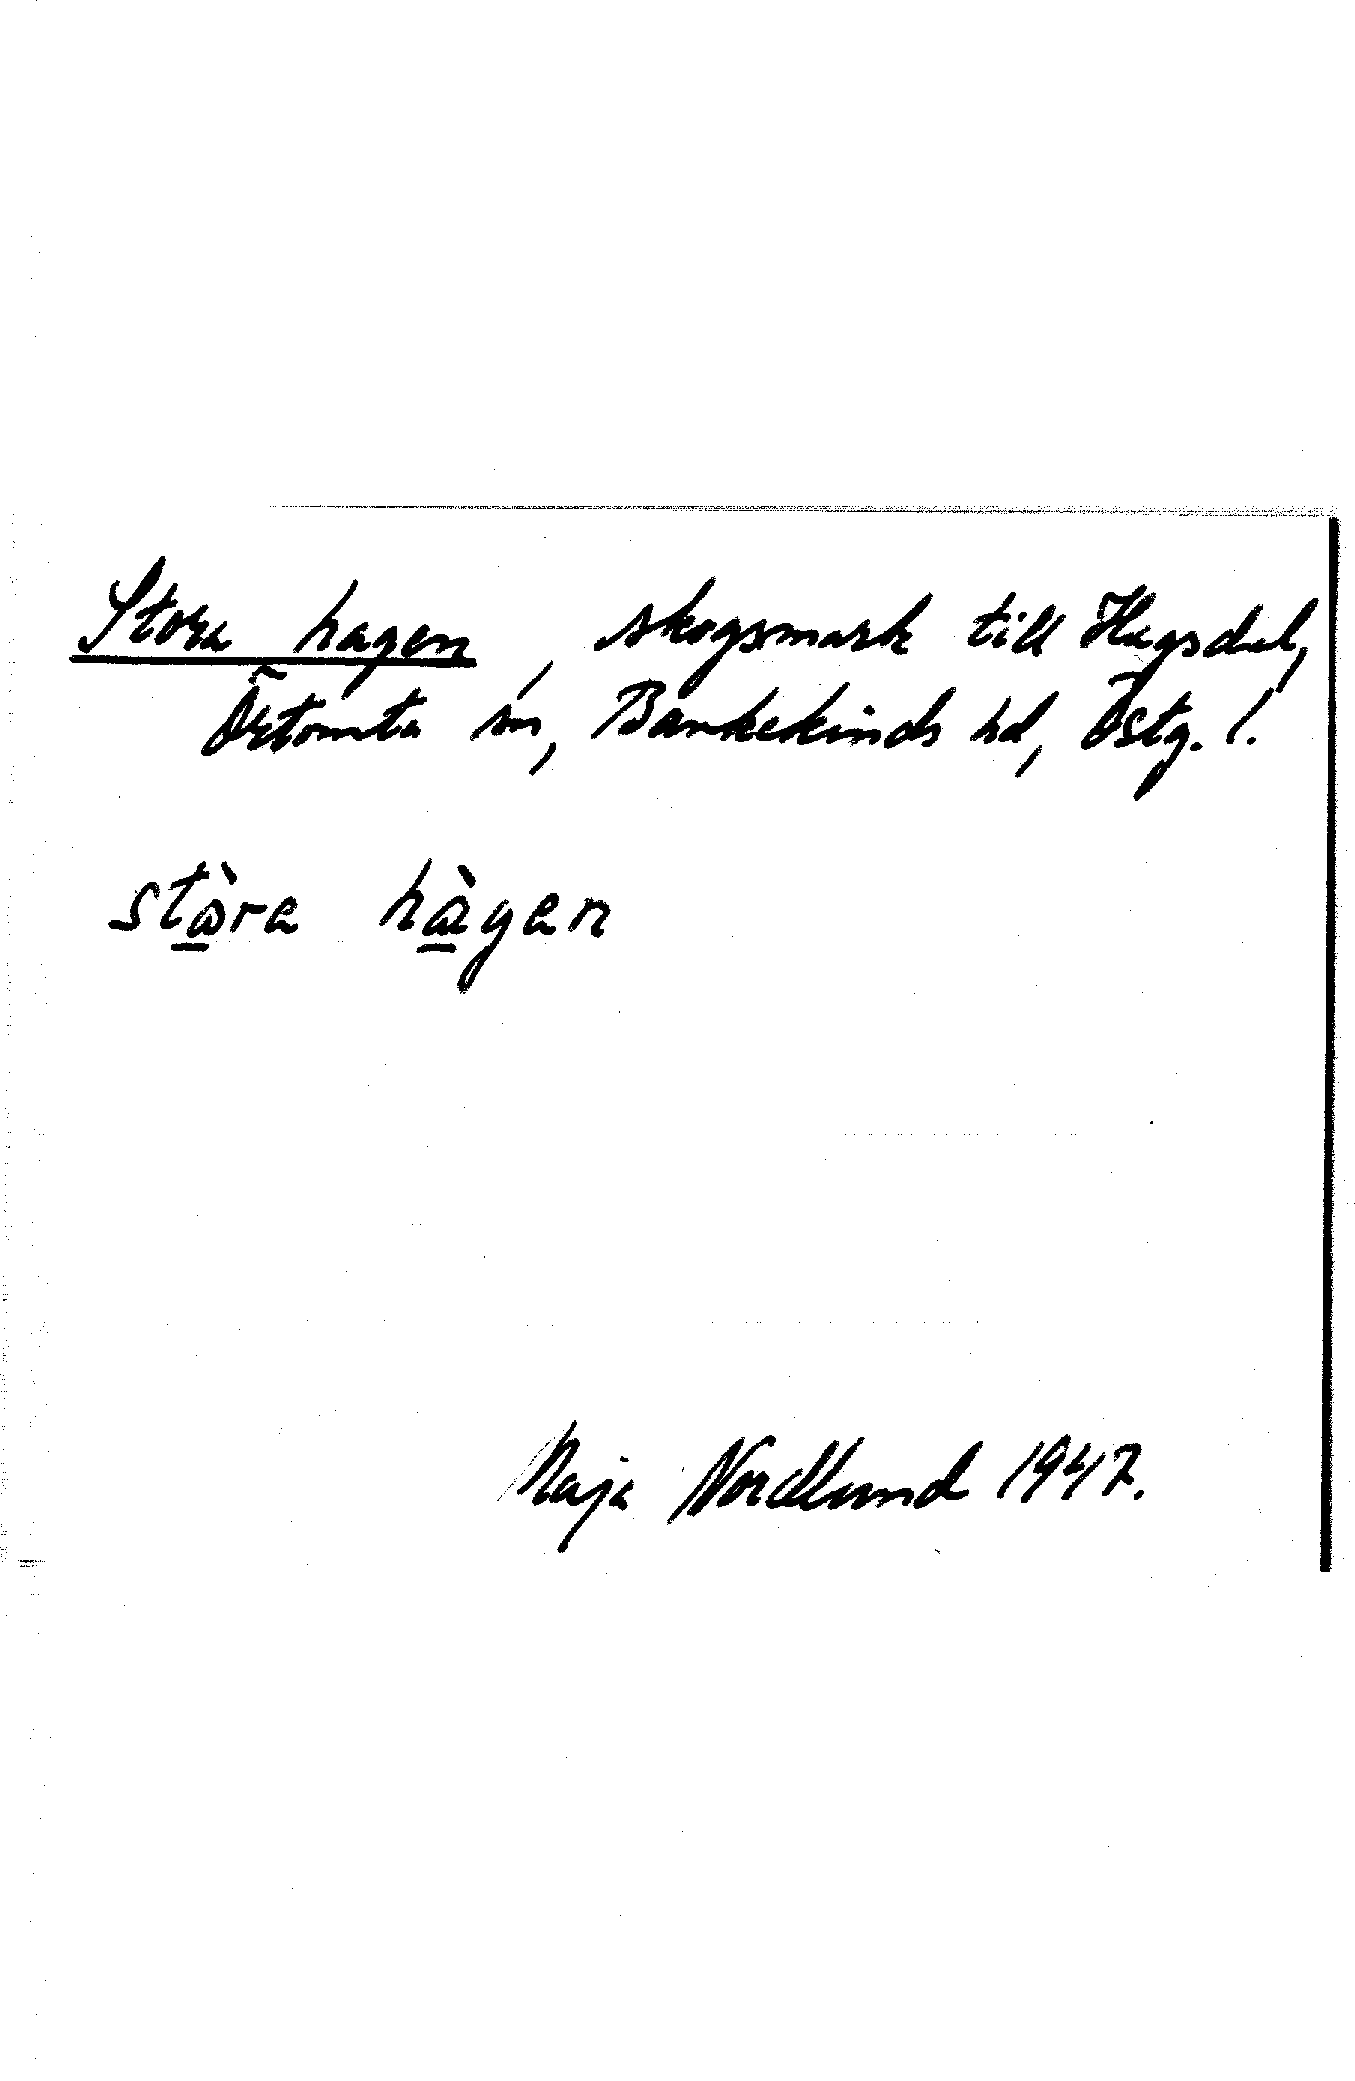 Stora hagen, skogsmark till Hagsdal,
Örtomta sn, Bankekinds hd, Östg. l.
stòra hàgen
Maja Nordlund 1947.